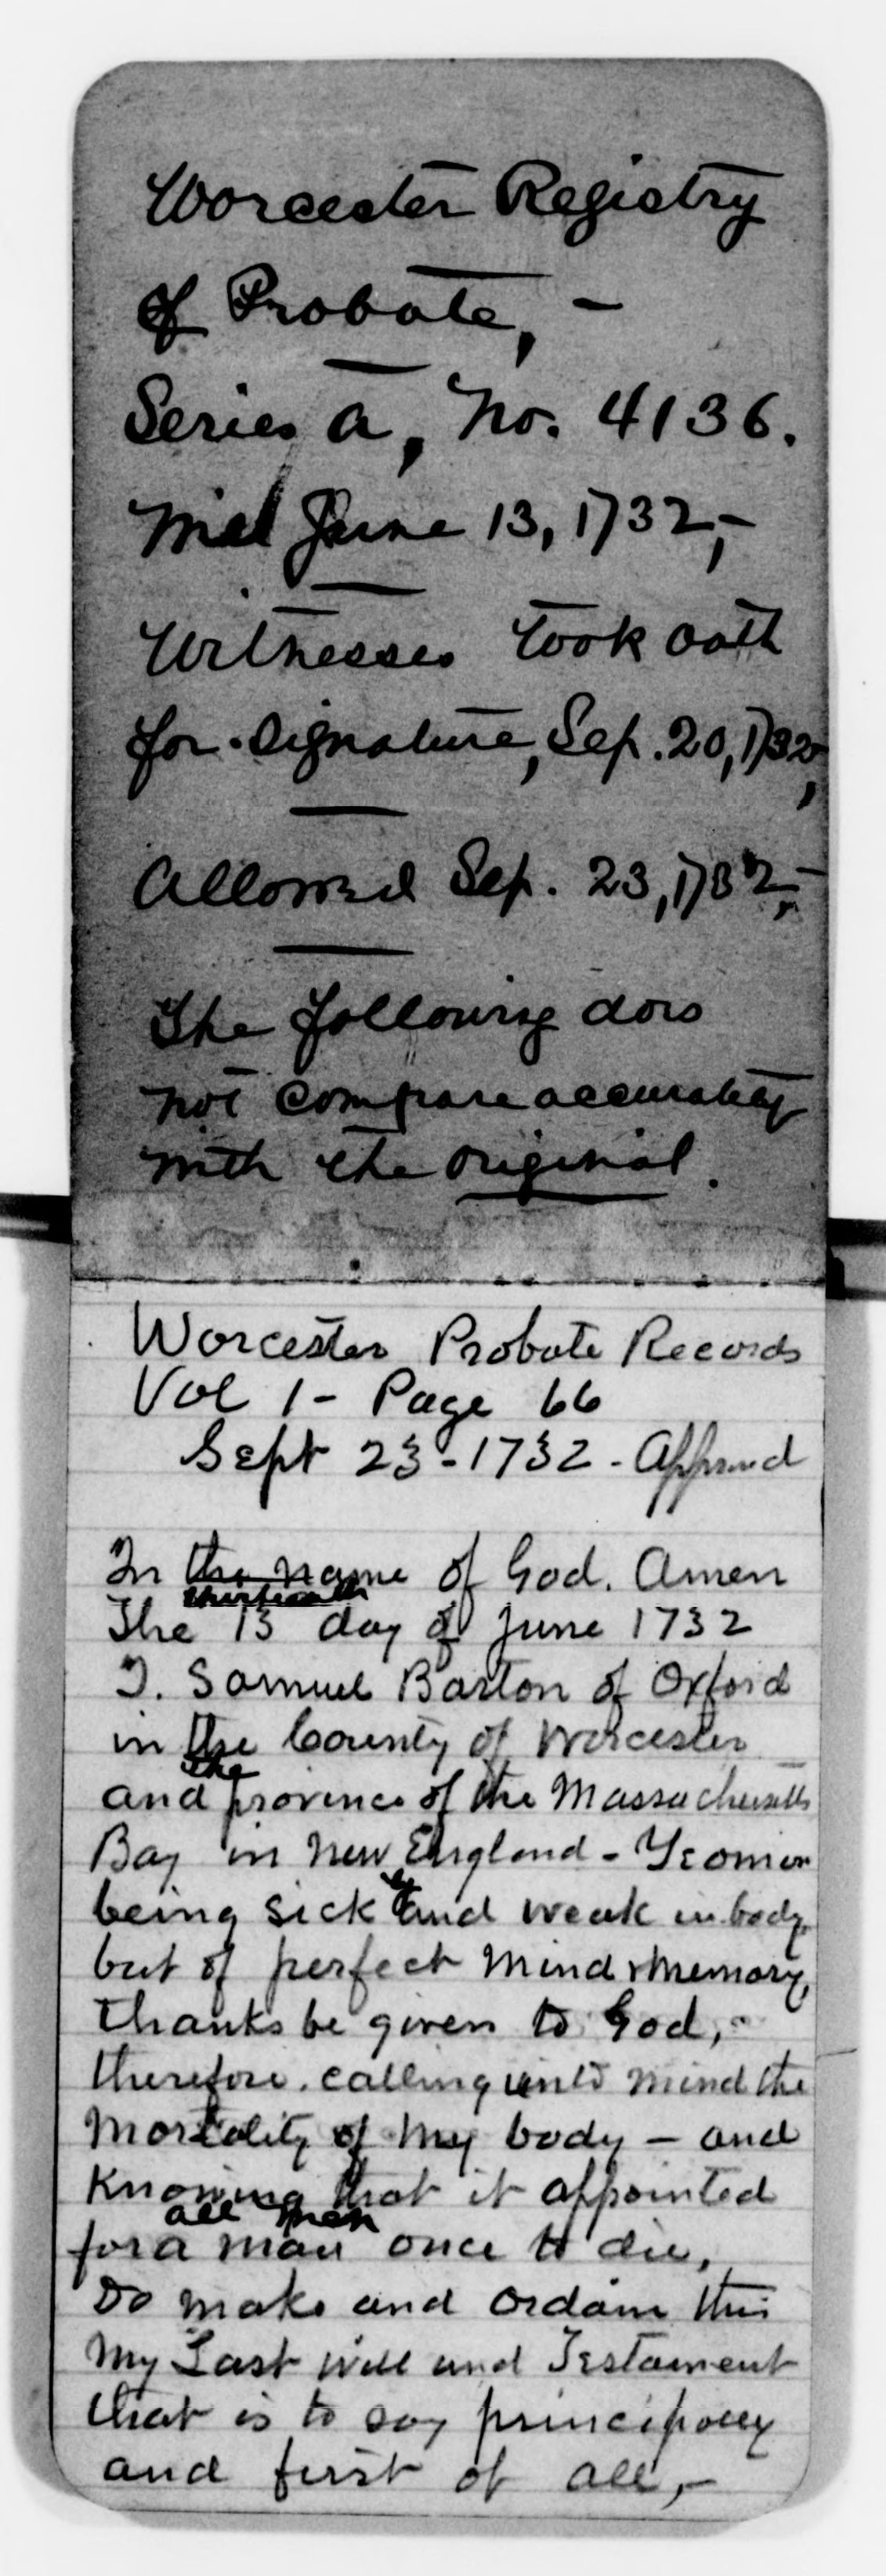 Worcester Registry
of Probate, -
Series A, No. 4136.
Will June 13, 1732,-
Witnesses took oath
for signature, Sep. 20, 1732,
Allowed Sep. 23, 1732,-
The following does
not compare accurately
with the original.
Worcester Probate Records
Vol 1 - Page 66
Sept 23 - 1732 - Approved
In the name of God. Amen
thirteenth
The 13 day of June 1732
I. Samuel Barton of Oxford
in the County of Worcester
the
and province of the Massachusetts
Bay in New England - Yeoman
being sick and weak in body
but of perfect mind & memory,
thanks be given to God, -
therefore. calling unto mind the
mortality of my body - and
Knowing that it appointed
all men
for a man once to die,
Do make and ordain this
my Last will and Testament
that is to say principally
and first of all, -